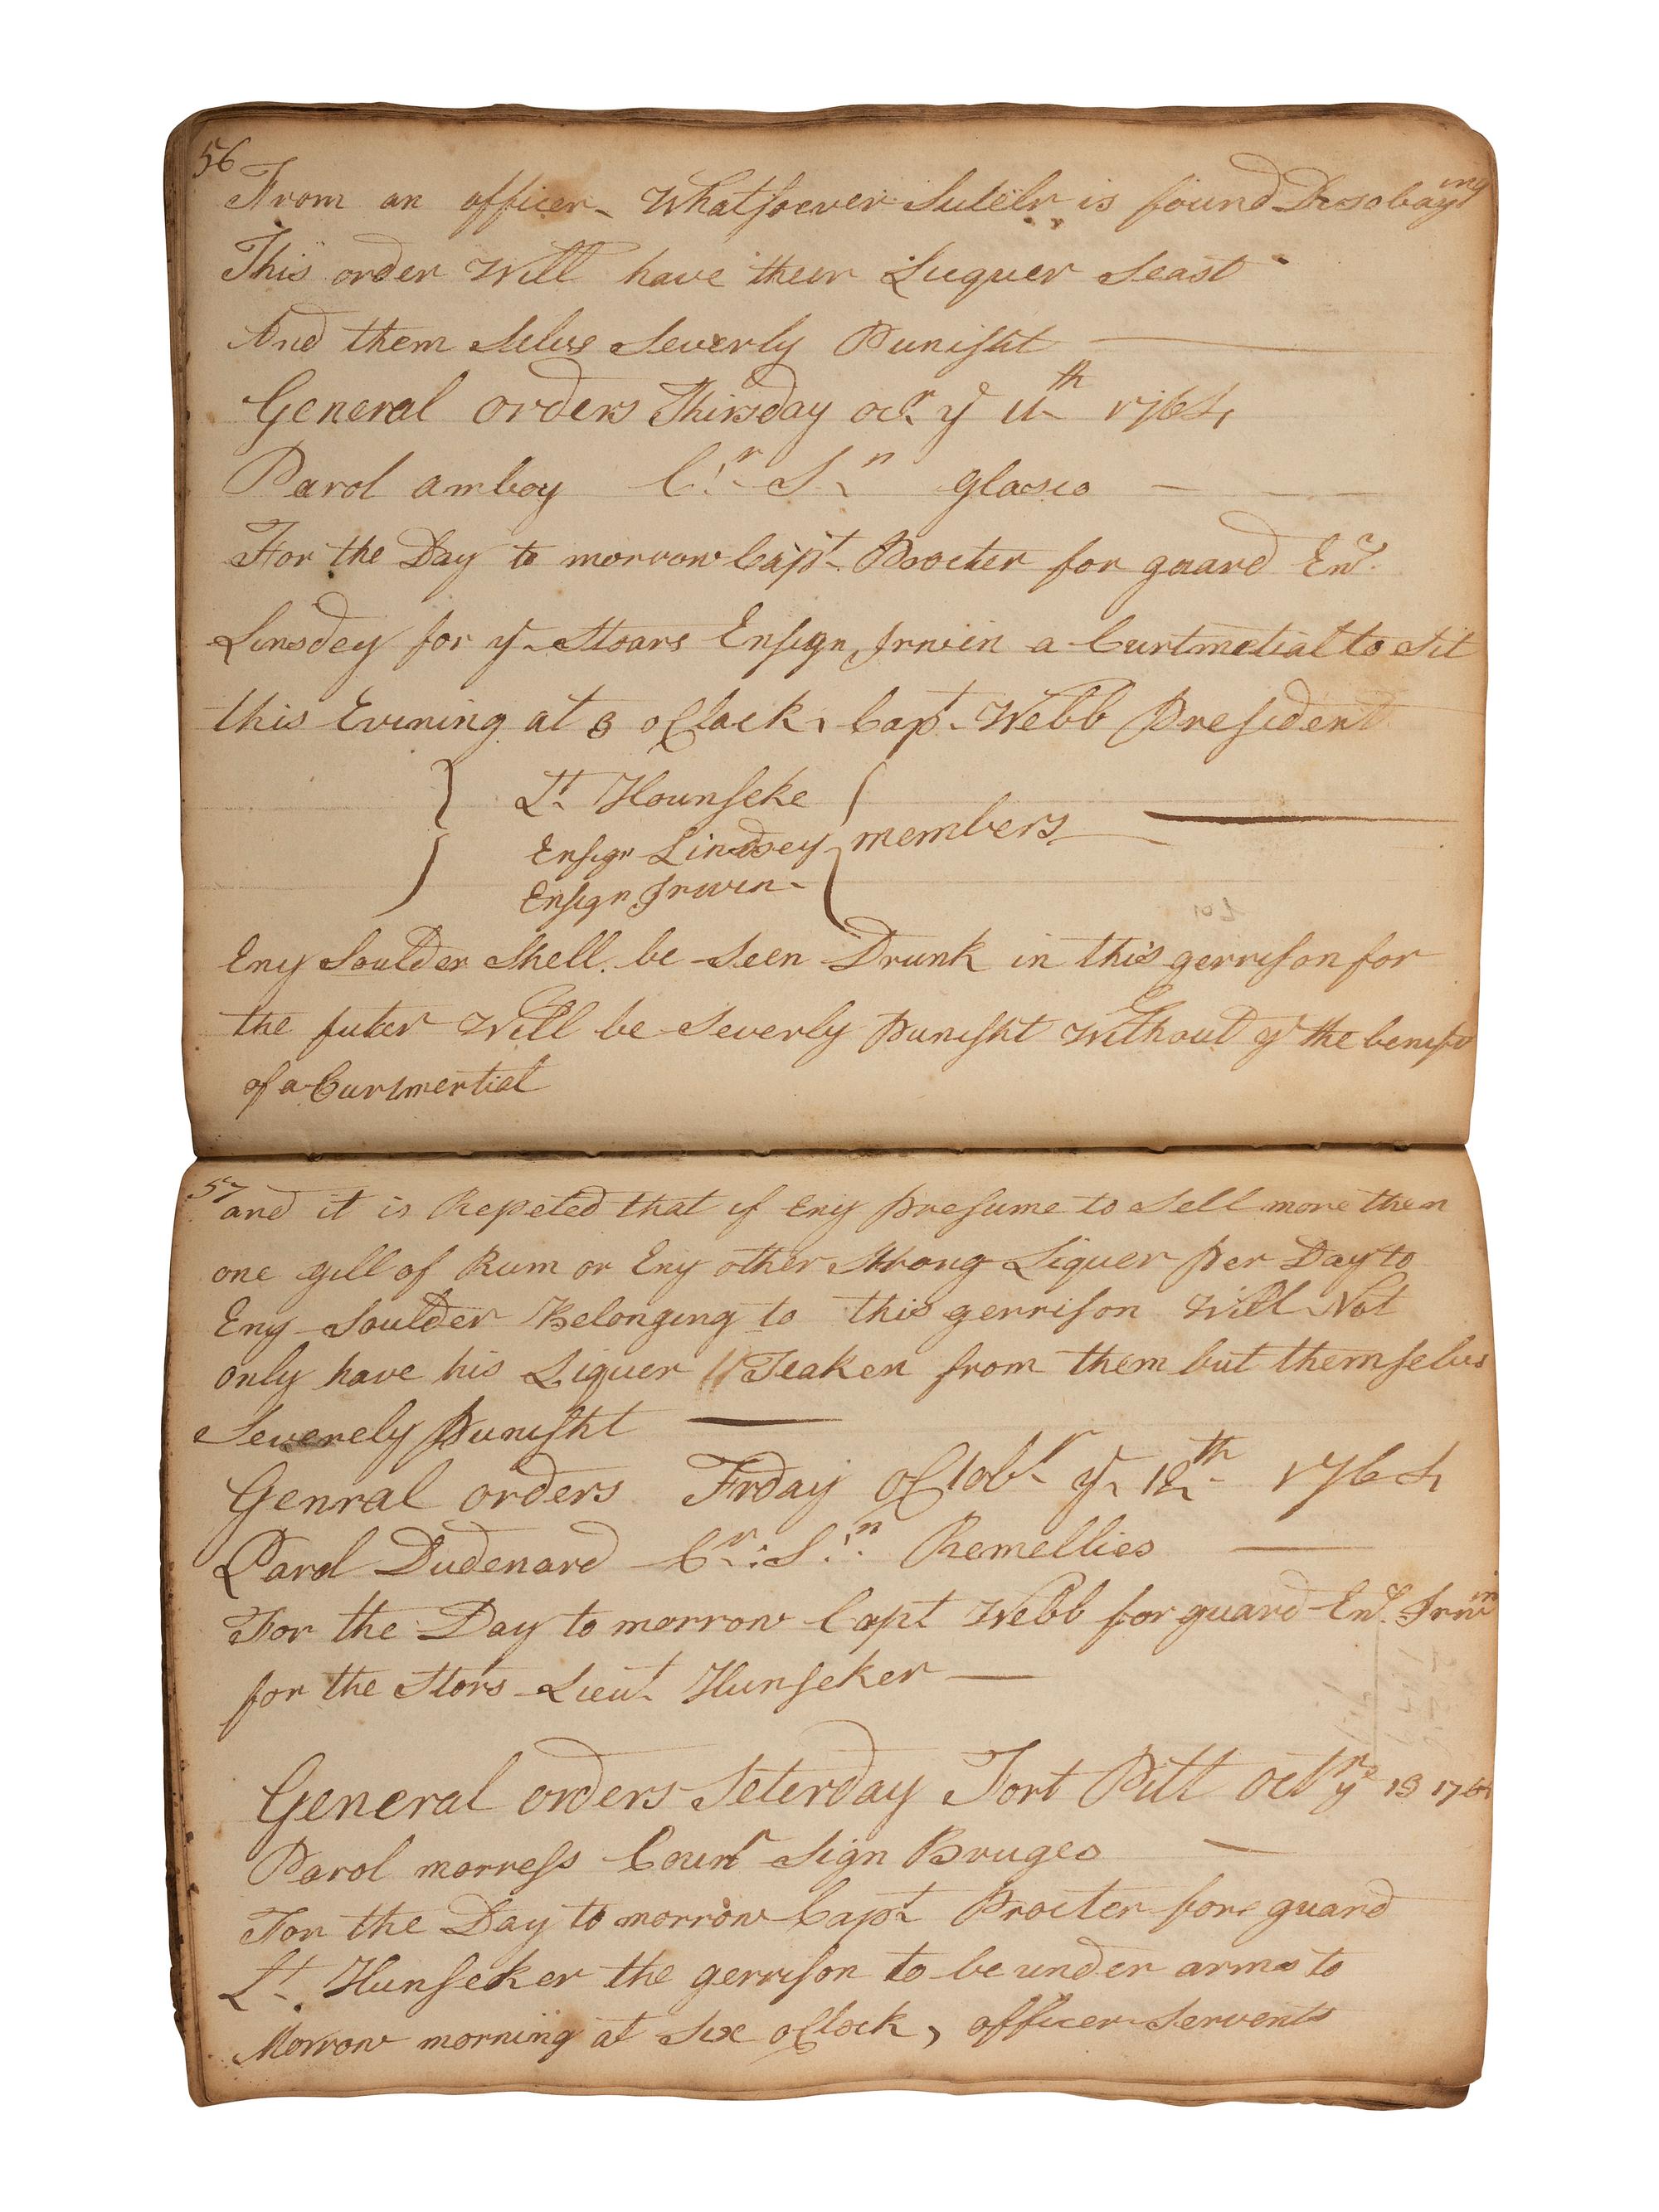 56
From an officer Whatsoever Suteler is found Disobaying
This order Will have their Luquer Seast
And them Selvs Severly Punisht
General orders Thirsday oct.r ye 11th 1764
Parol amboy C.r S.n glasco
For the Day to morrow Capt Procter for guard En.s
Linsdey for ye Stoars Ensign Irwin a Curtmetial to Sit
this Evining at 8 oClack Capt Webb President
Lt Hounseke
Ensign Lindsey members
Ensign Irwin
Eny Soulder Shell be Seen Drunk in this gerrison for
the futer Will be Severly Punisht Without ye the benift
of a Curtmertial
57
and it is Repeted that if Eny Presume to Sell more then
one gill of Rum or Eny other Strong Liquer Per Day to
Eny Soulder Belonging to this gerrison Will Not
only have his Liquer Teaken from them but themselvs
Severely Punisht
Genral orders Frday octobr ye 12th 1764
Parol Dudenard C.r: S.n: Remellies
For the Day to morrow Capt Webb for guard En.s Irwin
for the Stors Lieut Hunseker
General orders Seterday Fort Pitt octr ye 13 1764
Parol morress Countr Sign Bruges
For the Day to morrow Capt Procter fore guard
Lt. Hunseker the gerrison to be under arms to
Morrow morning at Six oClock, officer Servents